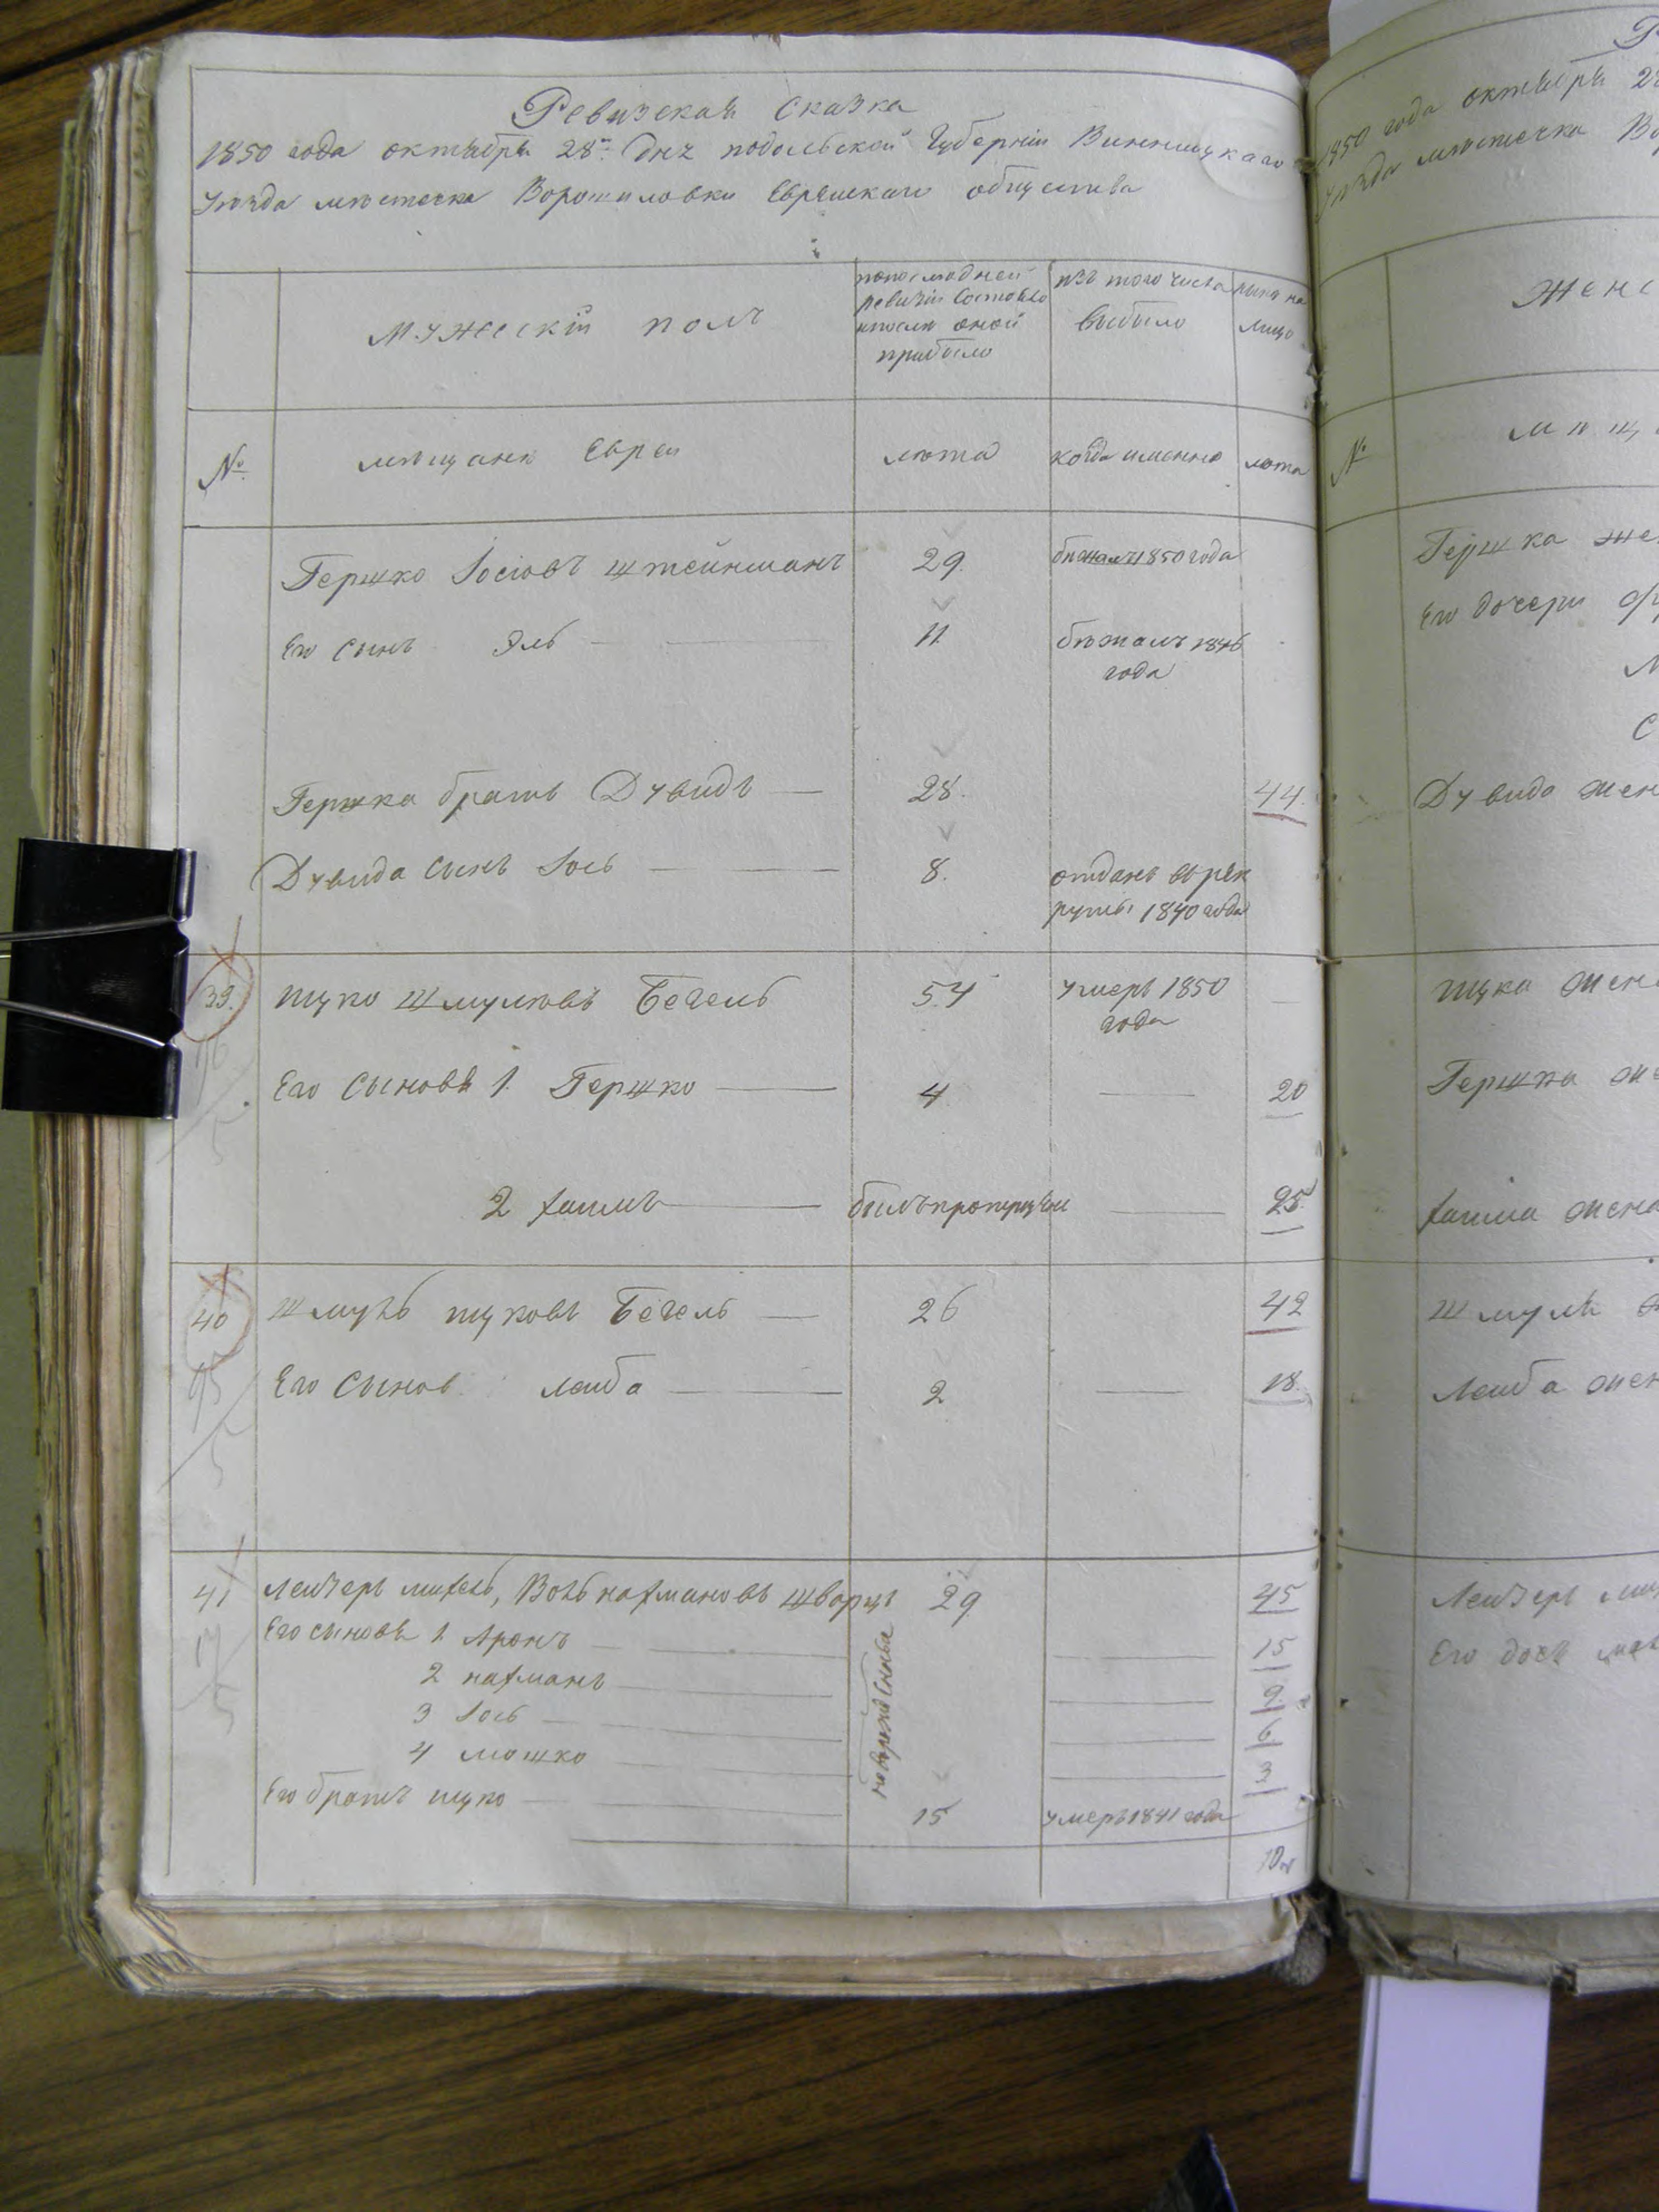 Ревизская Сказка
1850 года октября 28го дня подольской Губерніи Винницкаго
уѣзда мѣстечка Ворошиловки Еврейскаго общества
мужескій полъ
по последней ревизіи состояло и после оной прибыло
изъ того числа выбыло
ныне на лицо
№
мѣщане Евреи
лѣта
когда именно
лѣта
Гершко Іосіовъ Штейнманъ 29. бѣжалъ 1850 года
Его сынъ Эль 11 бѣжалъ 1846 года
Гершка братъ Дувидъ 28. 44.
Дувида сынъ Іось 8. отданъ въ рекруты 1840 года
39. Ицко Шмулювъ Бегель 54 умеръ 1850 года
Его сыновя 1. Гершко 4 20
2 Хаимъ былъ пропущен 25.
40 Шмуль Ицковъ Бегель 26 42
Его сынов Лейба 2 18.
41 Лейзеръ Михель, Воль Нахмановъ Шварцъ 29 45
Его сыновя 1 Аронъ 15
2 Нахманъ 9.
3 Іось 6.
4 Мошко 3
новорожденные
Его братъ Ицко 15 умеръ 1841 года
1850 года октября 2
уѣзда мѣстечка Во
Женс
№
мѣщ
Гершка же
Его дочери
Дувида жен
Ицка жена
Гершка же
Хаима жена
Шмуля
Лейба жен
Лейзера
Его дочь